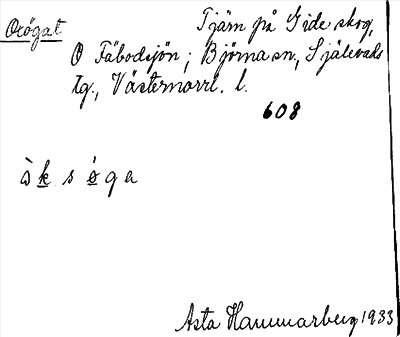 Oxögat Tjärn på Gide skog,
O Fäbodsjön; Björna sn, Själevads
tg., Västernorrl. l.
608
Asta Hammarberg 1933